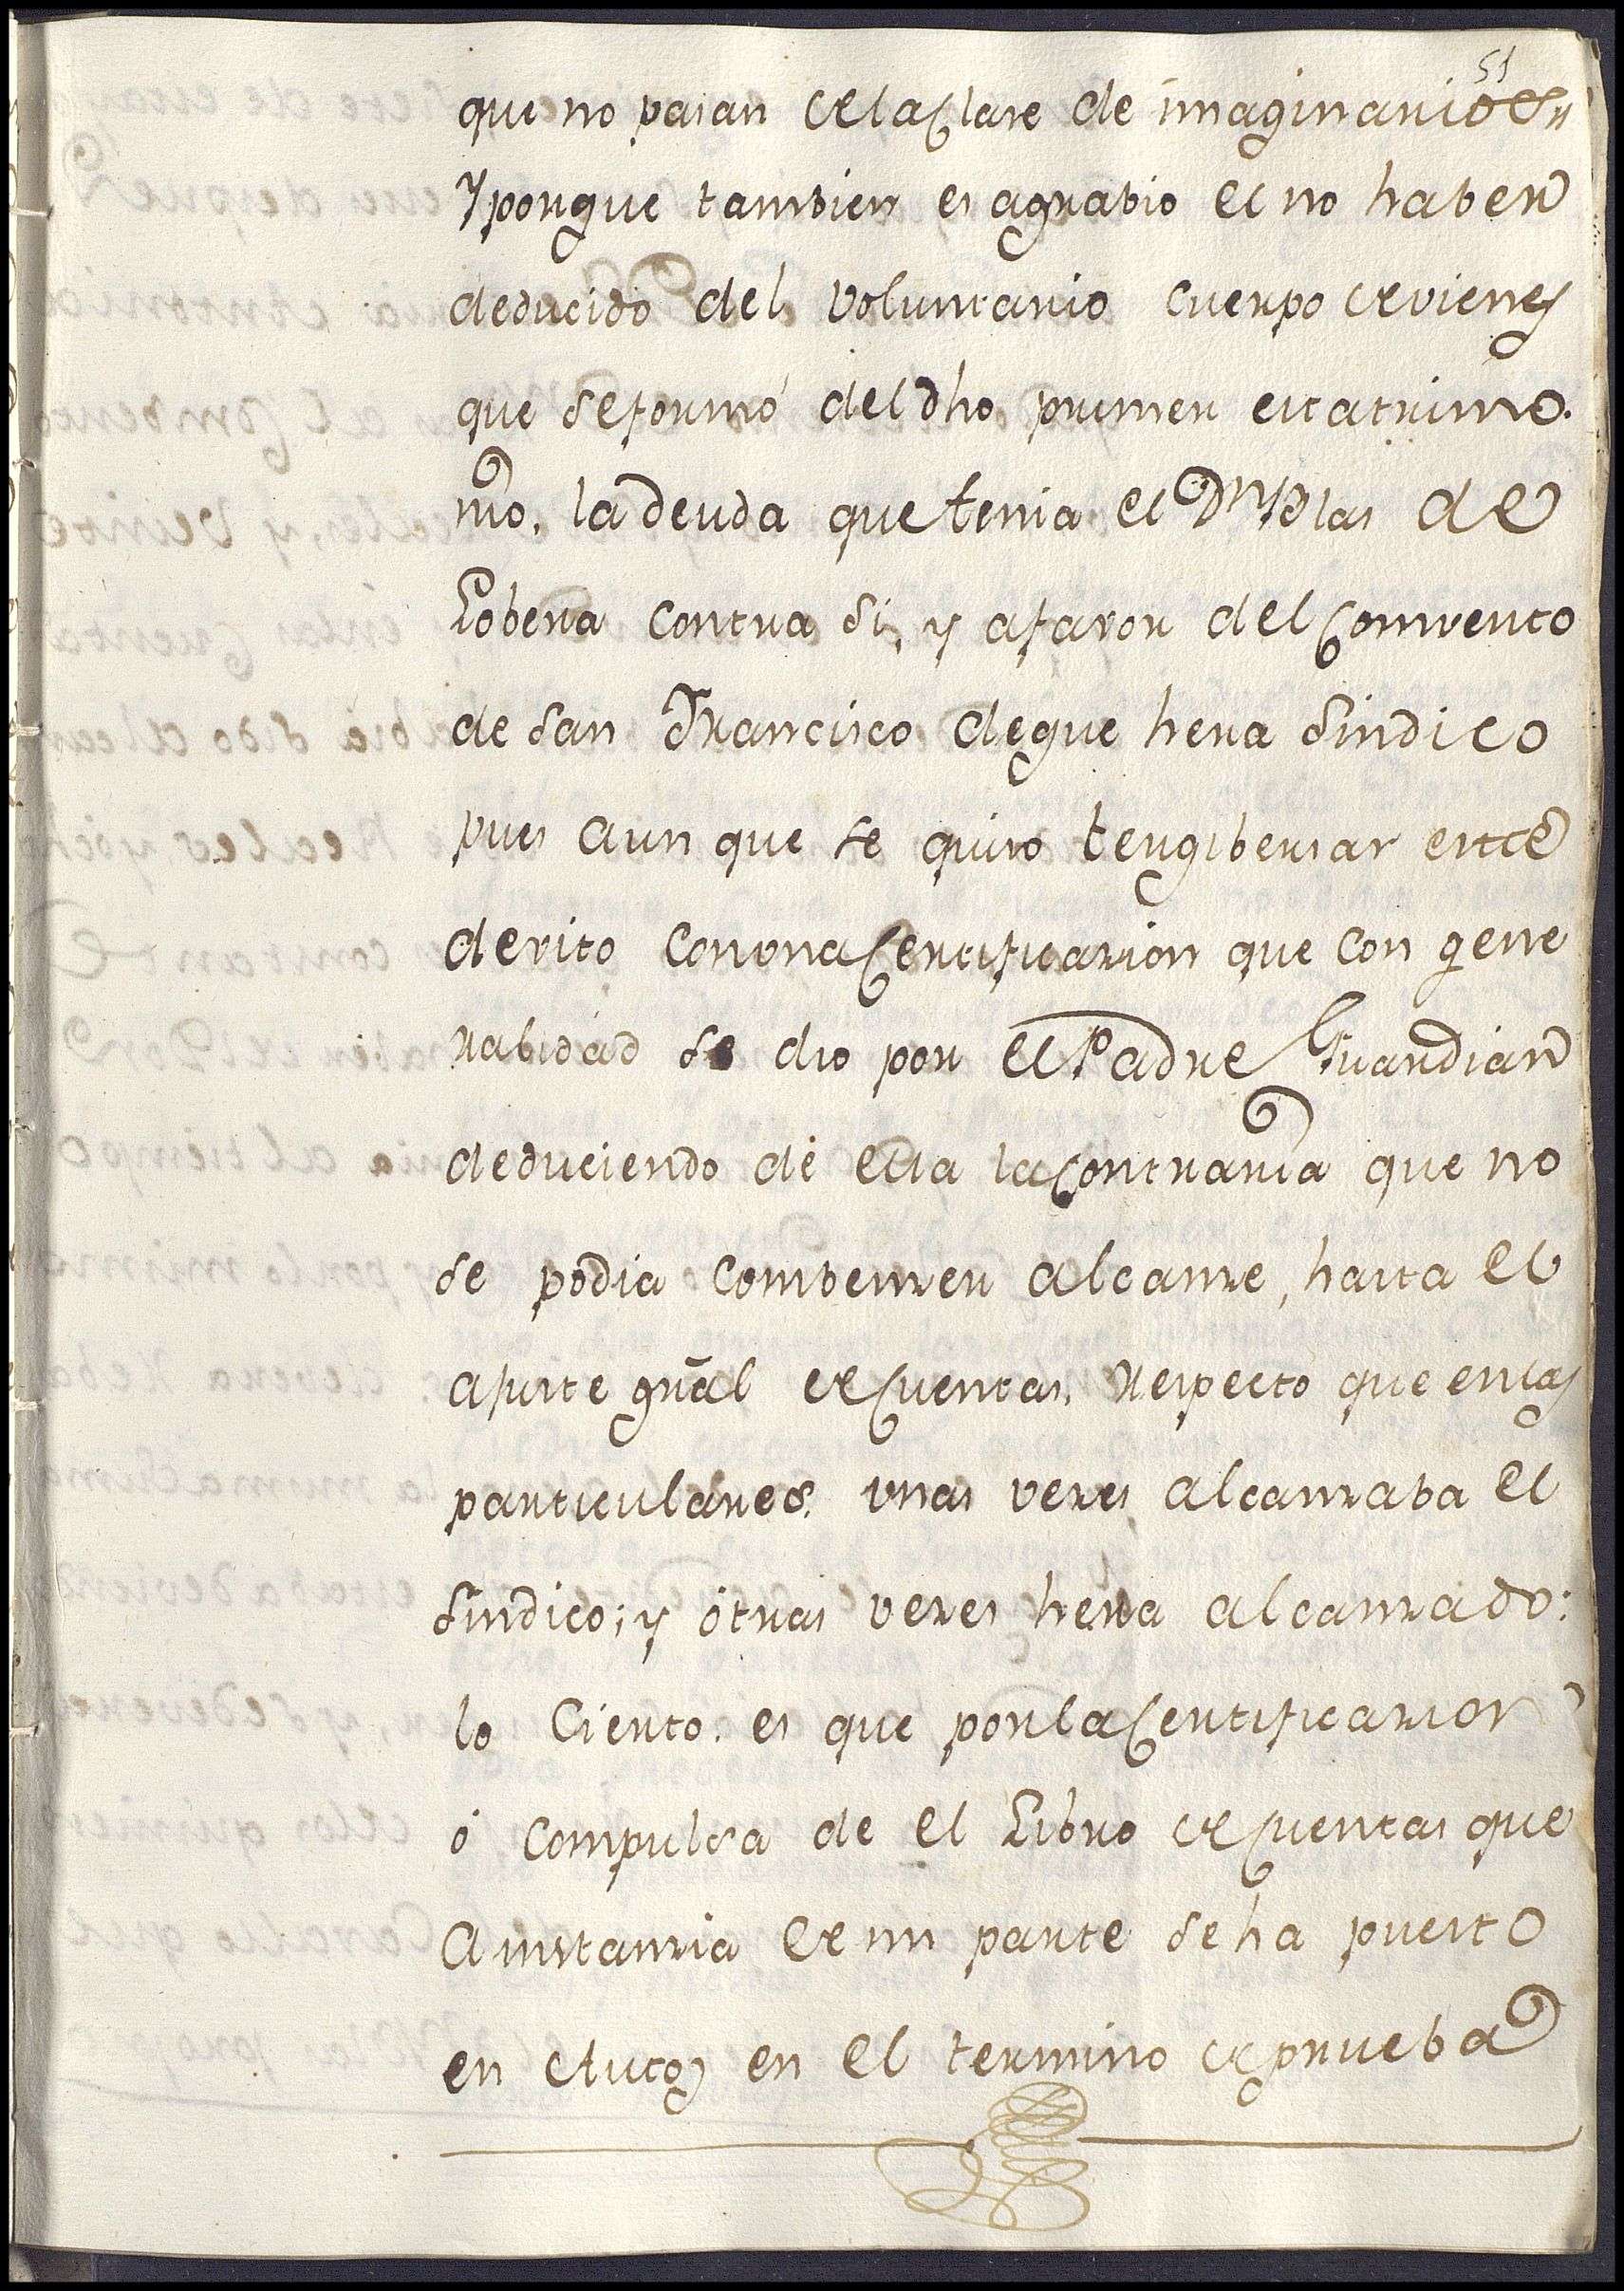 51
que no pasan de la Clase de imaginarios=
Y porque tambien es agrabio el no haber
deducido del voluntario cuerpo de vienes
que se formó del dho primer matrimo.
nio, la deuda que tenia el Dn Blas de
Lobera contra si, y a favor del Convento
de San Francisco de que hera Sindico
pues aun que se quiso tergibersar este
devito con vna Certificazion que con gene
ralidad se dio por el Padre Guardian
deduciendo de ella la Contraria que no
se podia combenzer alcanze, hasta el
ajuste gral de Cuentas, respecto que en las
particulares, vnas vezes alcanzaba el
Sindico; y otras vezes hera alcanzado:
lo Cierto, es que por la Certificazion
ó Compulsa de el Libro de Cuentas que
a instanzia de mi parte se ha puesto
en Autos en el termino de prueba